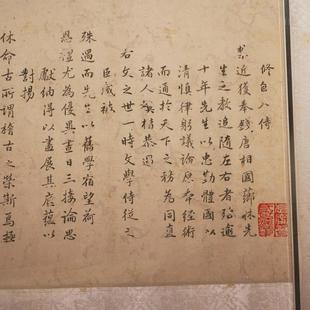 修自入侍
禁近後奉錢唐相國薌林先
生之教追隨左右者殆逾
十年先生以忠勤體國以
清慎律躬議論原本經術
而通於天下之務為同直
諸人楷恭遇
右文之世一時文學侍從之
臣咸被
殊遇而先生以舊學宿望荷
恩尤為優異晝日三接論思
獻納得以盡展其底蘊以
對揚
休命古所謂稽古之榮斯為極